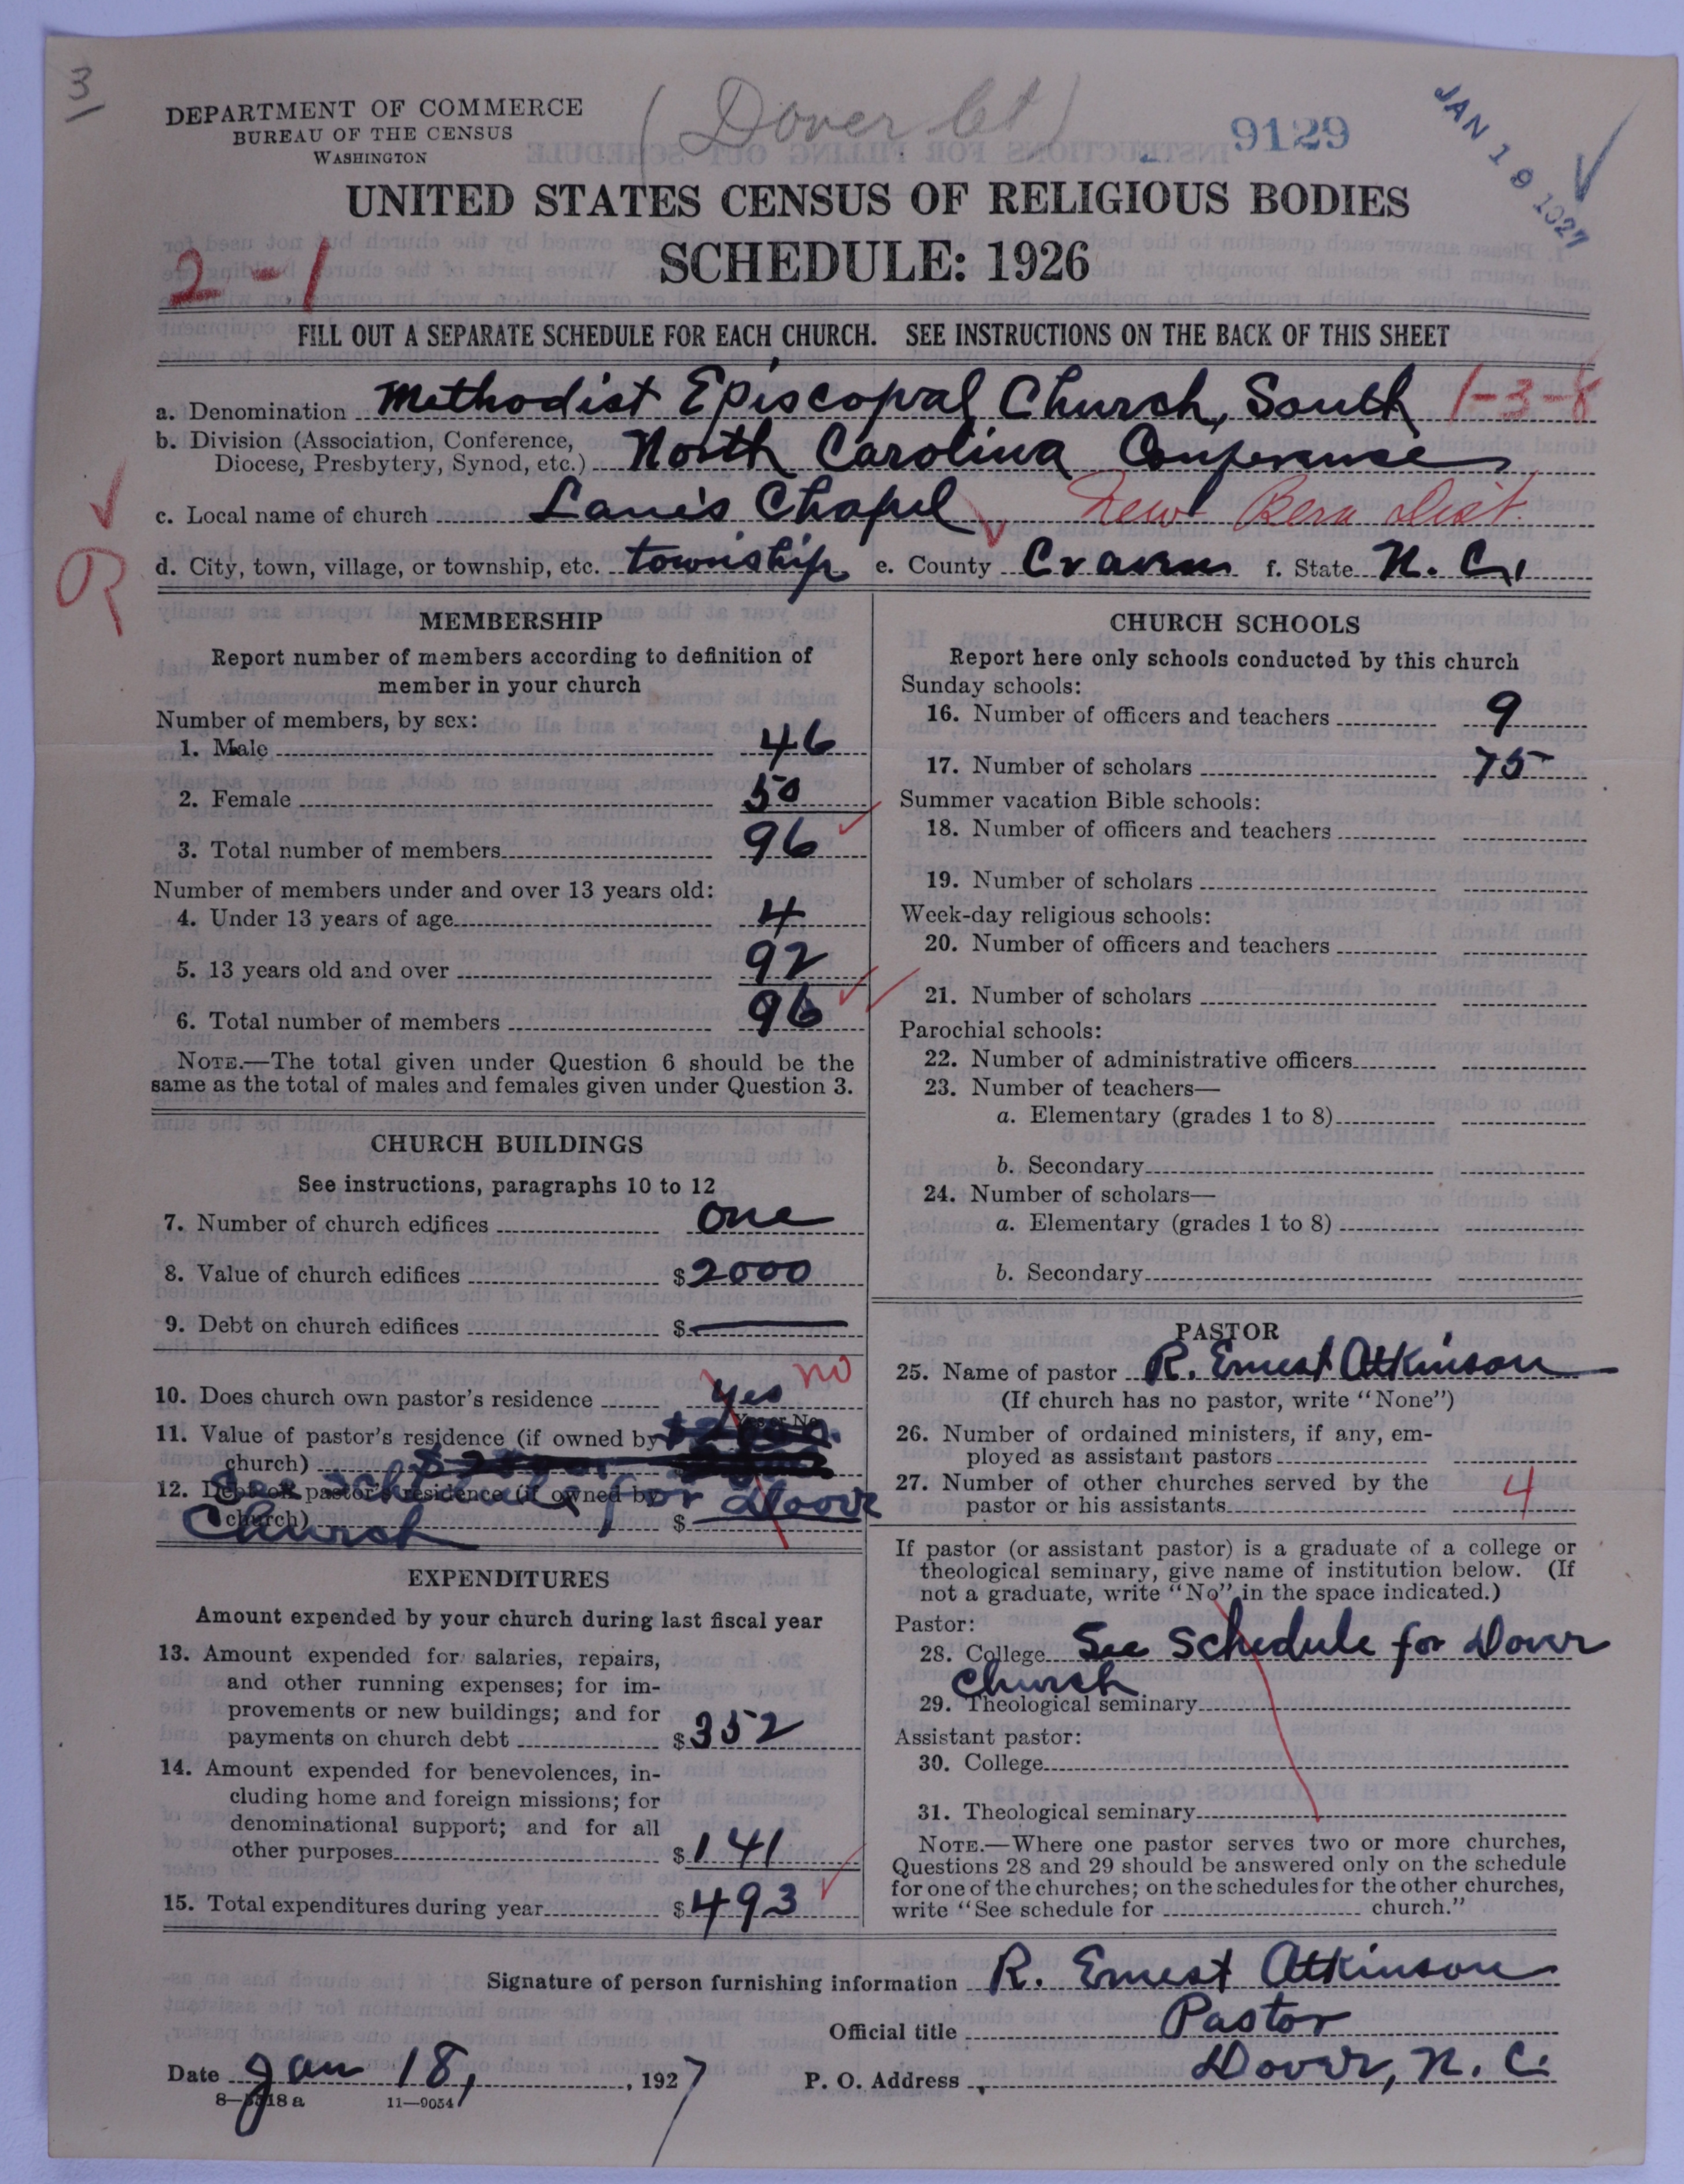 3
DEPARTMENT OF COMMERCE
BUREAU OF THE CENSUS
WASHINGTON
(Dover Ct)
9129
JAN 19 1927
UNITED STATES CENSUS OF RELIGIOUS BODIES
SCHEDULE: 1926
2-1
FILL OUT A SEPARATE SCHEDULE FOR EACH CHURCH. SEE INSTRUCTIONS ON THE BACK OF THIS SHEET
a. Denomination Methodist Episcopal Church, South 1-3-8
b. Division (Association, Conference,
Diocese, Presbytery, Synod, etc.) North Carolina Conference
c. Local name of church Lane's Chapel New Bern Dist.
d. City, town, village, or township, etc. township e. County Craven f. State N. C.
MEMBERSHIP
Report number of members according to definition of
member in your church
Number of members, by sex:
1. Male 46
2. Female 50
3. Total number of members 96
Number of members under and over 13 years old:
4. Under 13 years of age 4
5. 13 years old and over 92
6. Total number of members 96
NOTE.—The total given under Question 6 should be the
same as the total of males and females given under Question 3.
CHURCH BUILDINGS
See instructions, paragraphs 10 to 12
7. Number of church edifices one
8. Value of church edifices $2000
9. Debt on church edifices $
10. Does church own pastor's residence yes no
Yes or No
11. Value of pastor's residence (if owned by
church)
12. Debt on pastor's residence (if owned by
church) $
See schedule for Dover
Church
EXPENDITURES
Amount expended by your church during last fiscal year
13. Amount expended for salaries, repairs,
and other running expenses; for im-
provements or new buildings; and for
payments on church debt $352
14. Amount expended for benevolences, in-
cluding home and foreign missions; for
denominational support; and for all
other purposes $141
15. Total expenditures during year $493
CHURCH SCHOOLS
Report here only schools conducted by this church
Sunday schools:
16. Number of officers and teachers 9
17. Number of scholars 75
Summer vacation Bible schools:
18. Number of officers and teachers
19. Number of scholars
Week-day religious schools:
20. Number of officers and teachers
21. Number of scholars
Parochial schools:
22. Number of administrative officers
23. Number of teachers—
a. Elementary (grades 1 to 8)
b. Secondary
24. Number of scholars—
a. Elementary (grades 1 to 8)
b. Secondary
PASTOR
25. Name of pastor R. Ernest Atkinson
(If church has no pastor, write "None")
26. Number of ordained ministers, if any, em-
ployed as assistant pastors
27. Number of other churches served by the
pastor or his assistants 4
If pastor (or assistant pastor) is a graduate of a college or
theological seminary, give name of institution below. (If
not a graduate, write "No" in the space indicated.)
Pastor:
28. College See schedule for Dover
Church
29. Theological seminary
Assistant pastor:
30. College
31. Theological seminary
NOTE.—Where one pastor serves two or more churches,
Questions 28 and 29 should be answered only on the schedule
for one of the churches; on the schedules for the other churches,
write "See schedule for church."
Signature of person furnishing information R. Ernest Atkinson
Official title Pastor
Date Jan 18, 1927 P. O. Address Dover, N. C.
11—9054